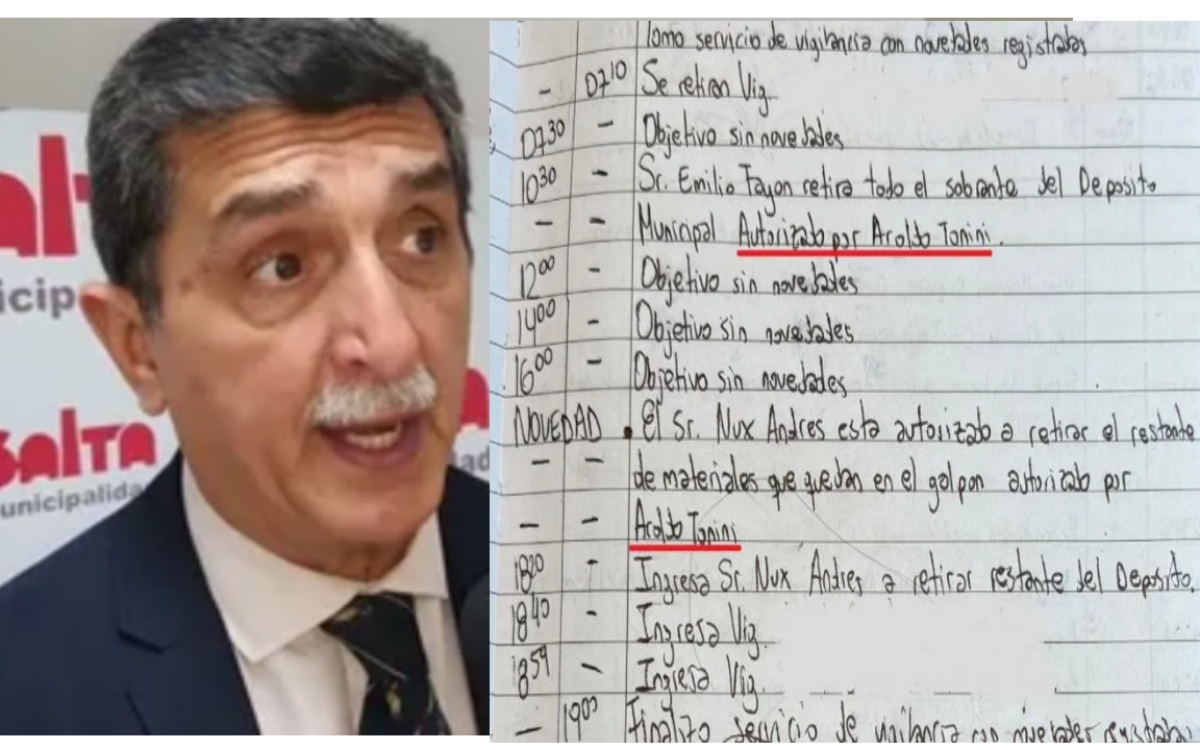 alta
icip
SALTA
unicipalida
ad
Tomo servicio de vigilancia con novedades registradas
- 0710 Se retiran Vig.
0730 - Objetivo sin novedades
1030 - Sr. Emilio Fayon retira todo el sobrante del Deposito
- - Municipal Autorizado por Aroldo Tonini.
1200 - Objetivo sin novedades
1400 - Objetivo sin novedades
1600 - Objetivo sin novedades
NOVEDAD . El Sr. Nux Andres esta autorizado a retirar el restante
- - de materiales que quedan en el galpon autorizado por
- - Aroldo Tonini
1820 - Ingresa Sr. Nux Andres a retirar restante del Deposito.
1840 - Ingresa Vig.
1859 - Ingresa Vig.
- 1900 Finalizo servicio de vigilancia con novedades registradas